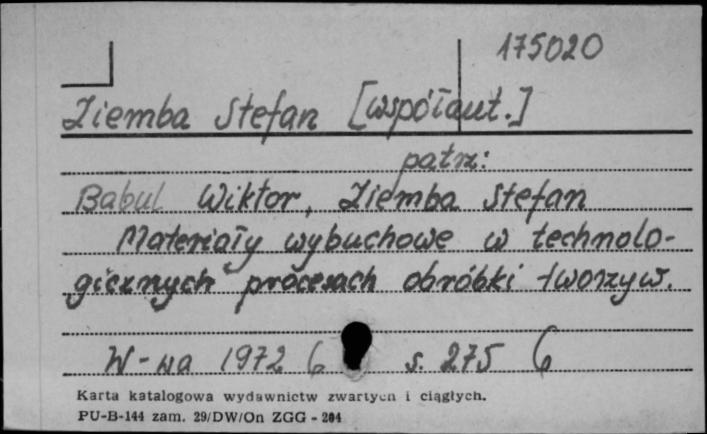 175020
Ziemba Stefan [współaut.]
patrz:
Babul Wiktor, Ziemba Stefan
Materiały wybuchowe w technolo-
gicznych procesach obróbki tworzyw.
W-wa 1972 s. 275
Karta katalogowa wydawnictw zwartych i ciągłych.
PU-B-144 zam. 29/DW/On ZGG - 204